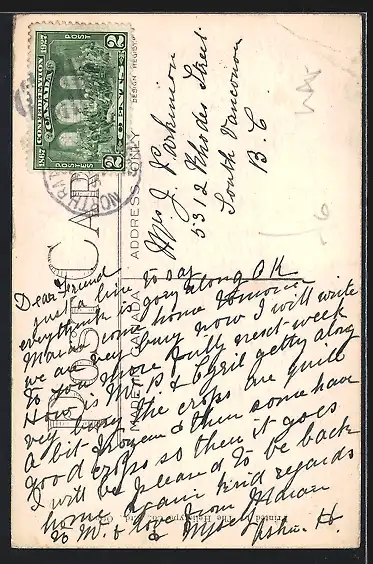 POST CARD
ADDRESS ONLY
DESIGN REGISTERED
MADE IN CANADA
1867 CONFEDERATION 1927
CANADA
POSTES POST
2 CENTS 2
NORTH BA
Mrs J Parkinson
5312 Rhodes Street
South Vancouver
B. C
Dear Friend
just a line to say
everything is going along OK
Maria come home tomorrow
we are very busy now I will write
to you more fully next week
How is Mr P & Cyril getty along
very busy the crops are quite
a bit frozen & then some have
good crops so then it goes
I will be pleased to be back
home again kind regards
to Mr. & love from
Printed by The Heliotype Co., Ltd., Ottawa